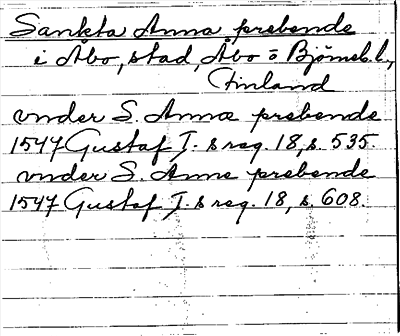 Sankta Anna prebende
i Åbo, stad, Åbo o Björneb. l.,
Finland
under S. Annæ prebende
1547 Gustaf I:s reg. 18, s. 535.
under S. Anne prebende
1547 Gustaf I:s reg. 18, s. 608.